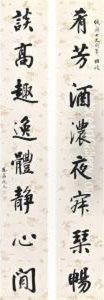 肴芳酒濃夜寐琴暢
談高趣逸體靜心閒